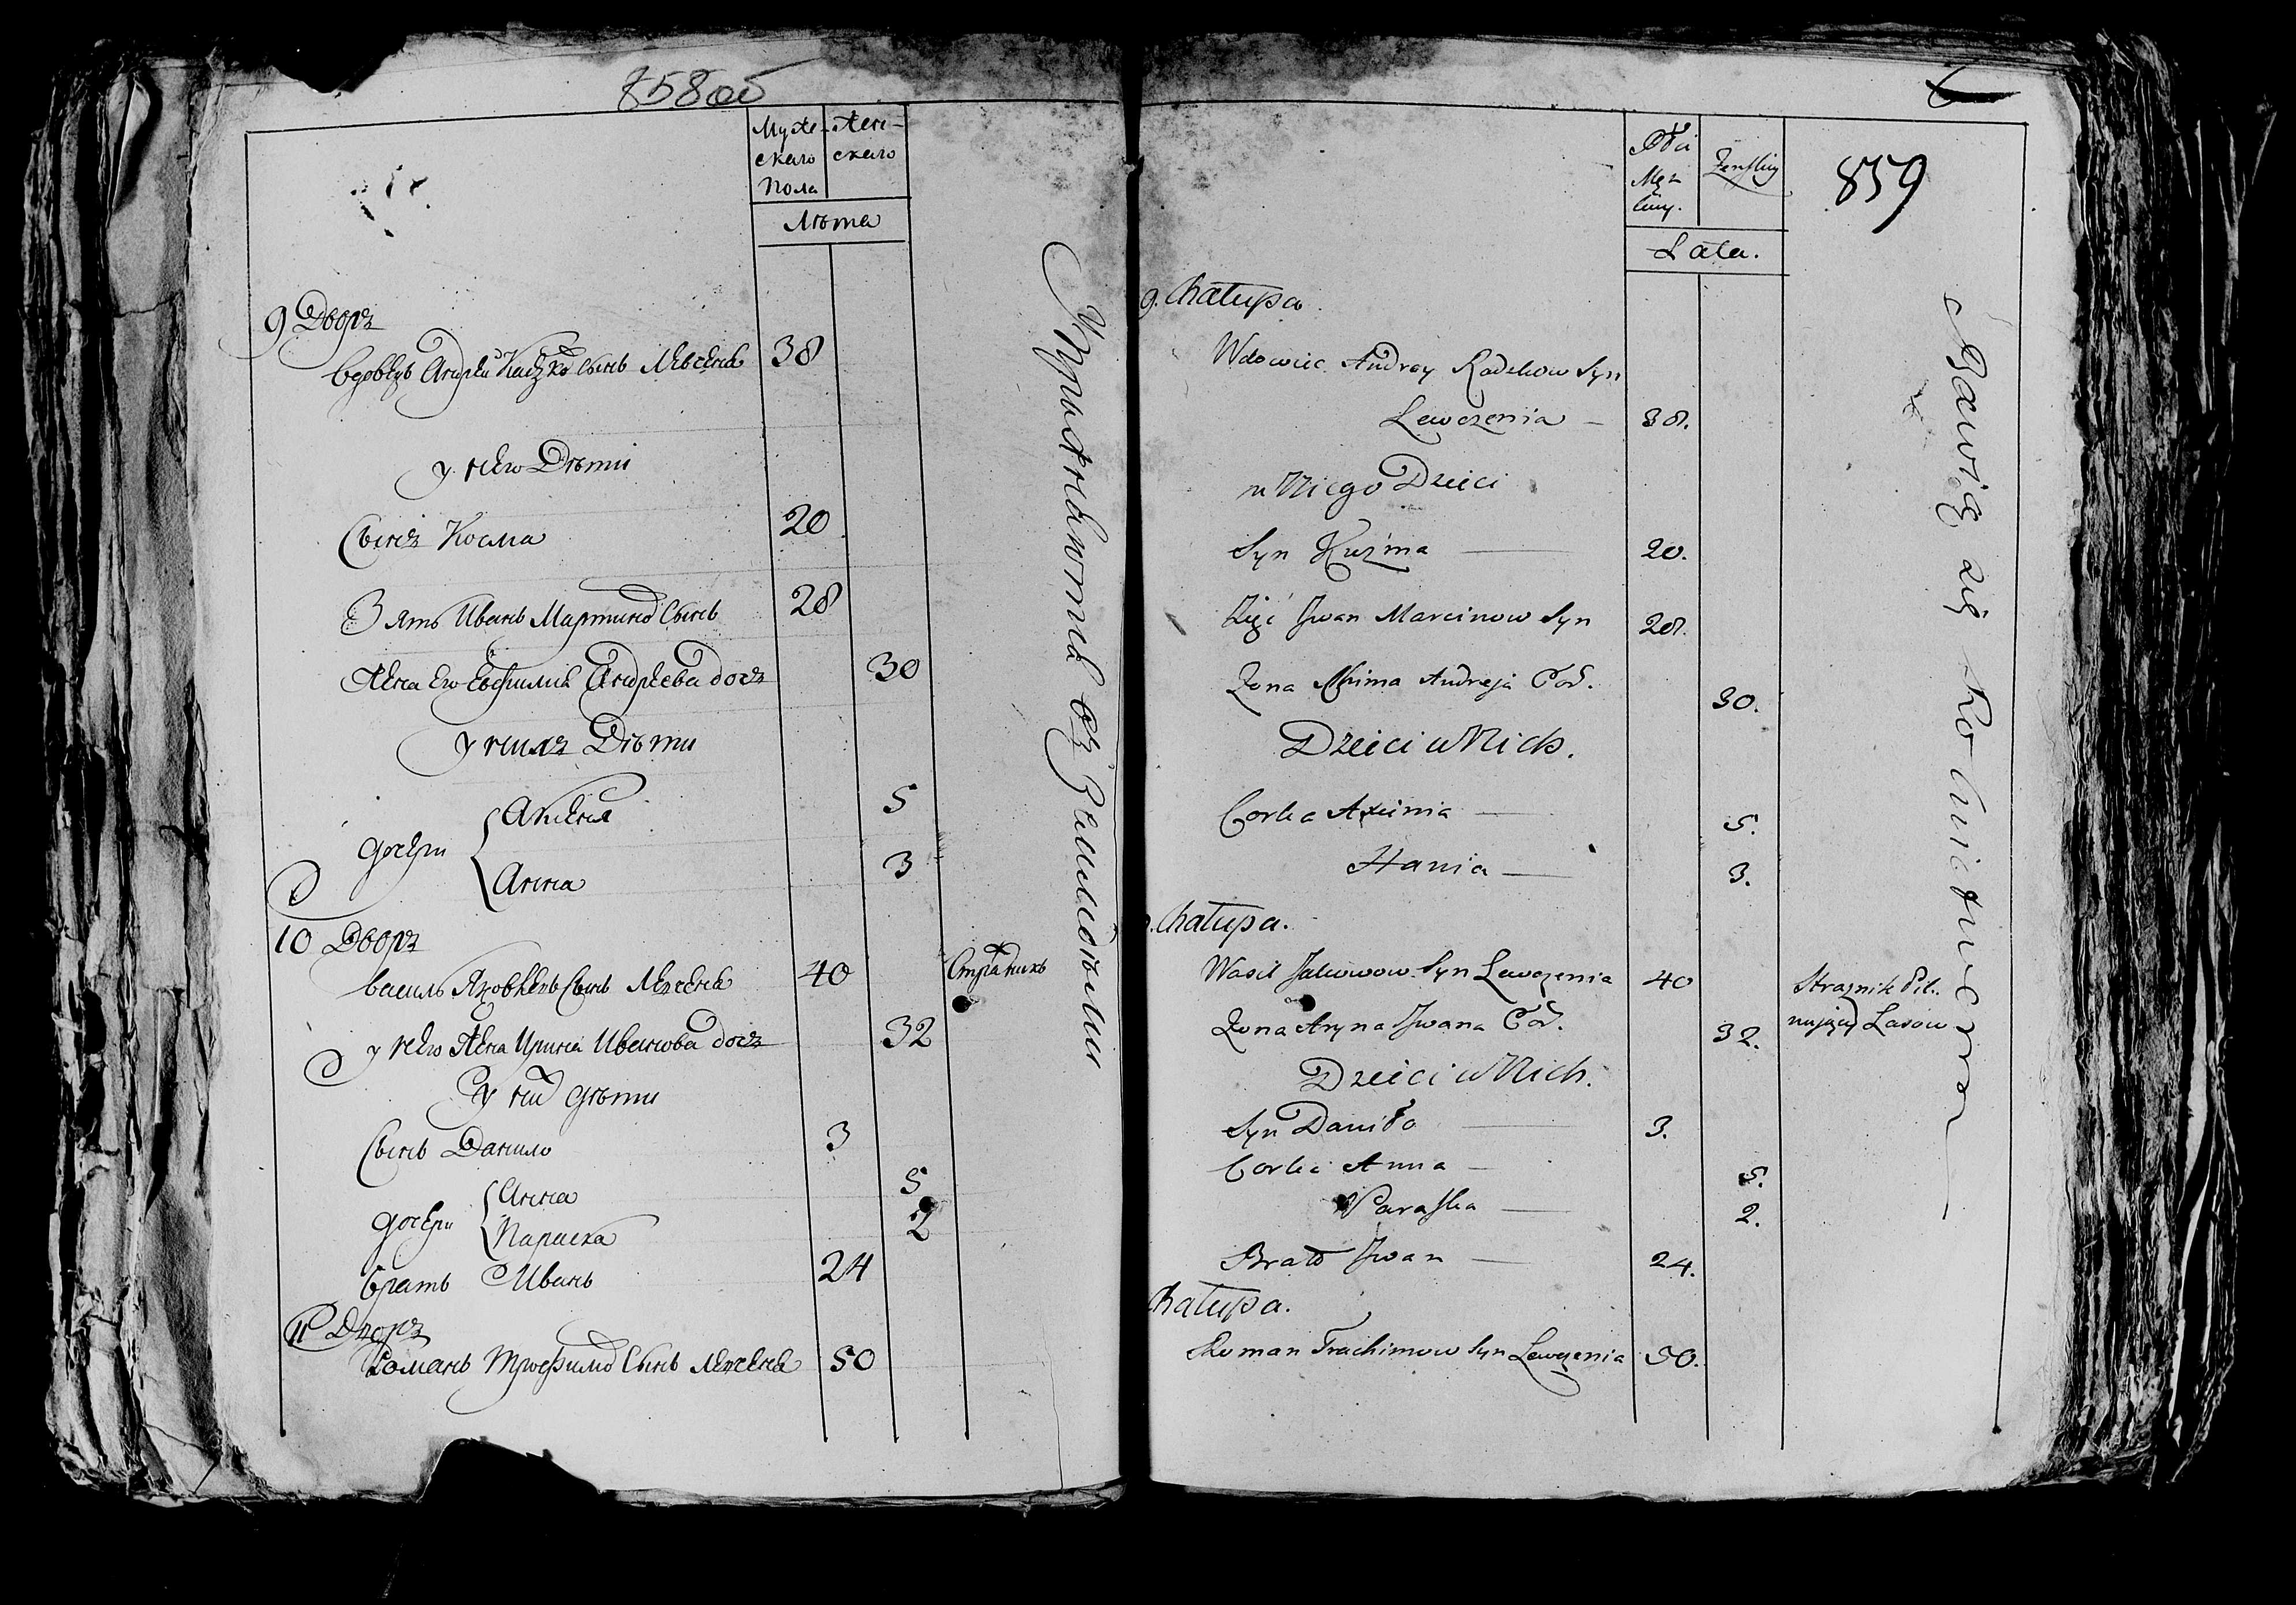 858об
Мужескаго Пола
Женскаго
Лѣта
9 Дворъ
Вдовецъ Андрей сынъ Левченя 38
у него Дѣти
Сынъ Косма 20
Зять Иванъ Мартиновъ Сынъ 28
Жена его Евфимия Андреева дочь 30
у нихъ Дѣти
дочери Аксеня 5
Анна 3
10 Дворъ
Василь Яковлевъ Сынъ Левченя 40 Стражникъ
у него Жена Ирина Иванова дочь 32
у них дѣти
Сынъ Данило 3
дочери Анна 5
Параска 2
братъ Иванъ 24
11 Дворъ
Романъ Трофимов Сынъ Левченя 50
Упражняютца въ Землю
859
Płci
Męz
kiey.
Zenskiey
Lata.
9. Chałupa.
Wdowiec Andrey Radzkow Syn
Lewczenia — 38.
u Niego Dzieci
Syn Kuźma — 20.
Zięć Jwan Marcinow Syn 28.
Zona Chima Andreja Cod. 30.
Dzieci u Nich.
Corka Axinia — 5.
Hania — 3.
Chałupa.
Wasil Jakowow Syn Lewczenia 40 Straznik Pil-
nujący Lasow
Zona Aryna Jwana Cod. 32.
Dzieci u Nich.
Syn Daniło — 3.
Corki Anna — 5.
Paraska — 2.
Brat Jwan — 24.
Chałupa.
Roman Trachimow Syn Lewczenia 50.
Bawią się Rolnictwem